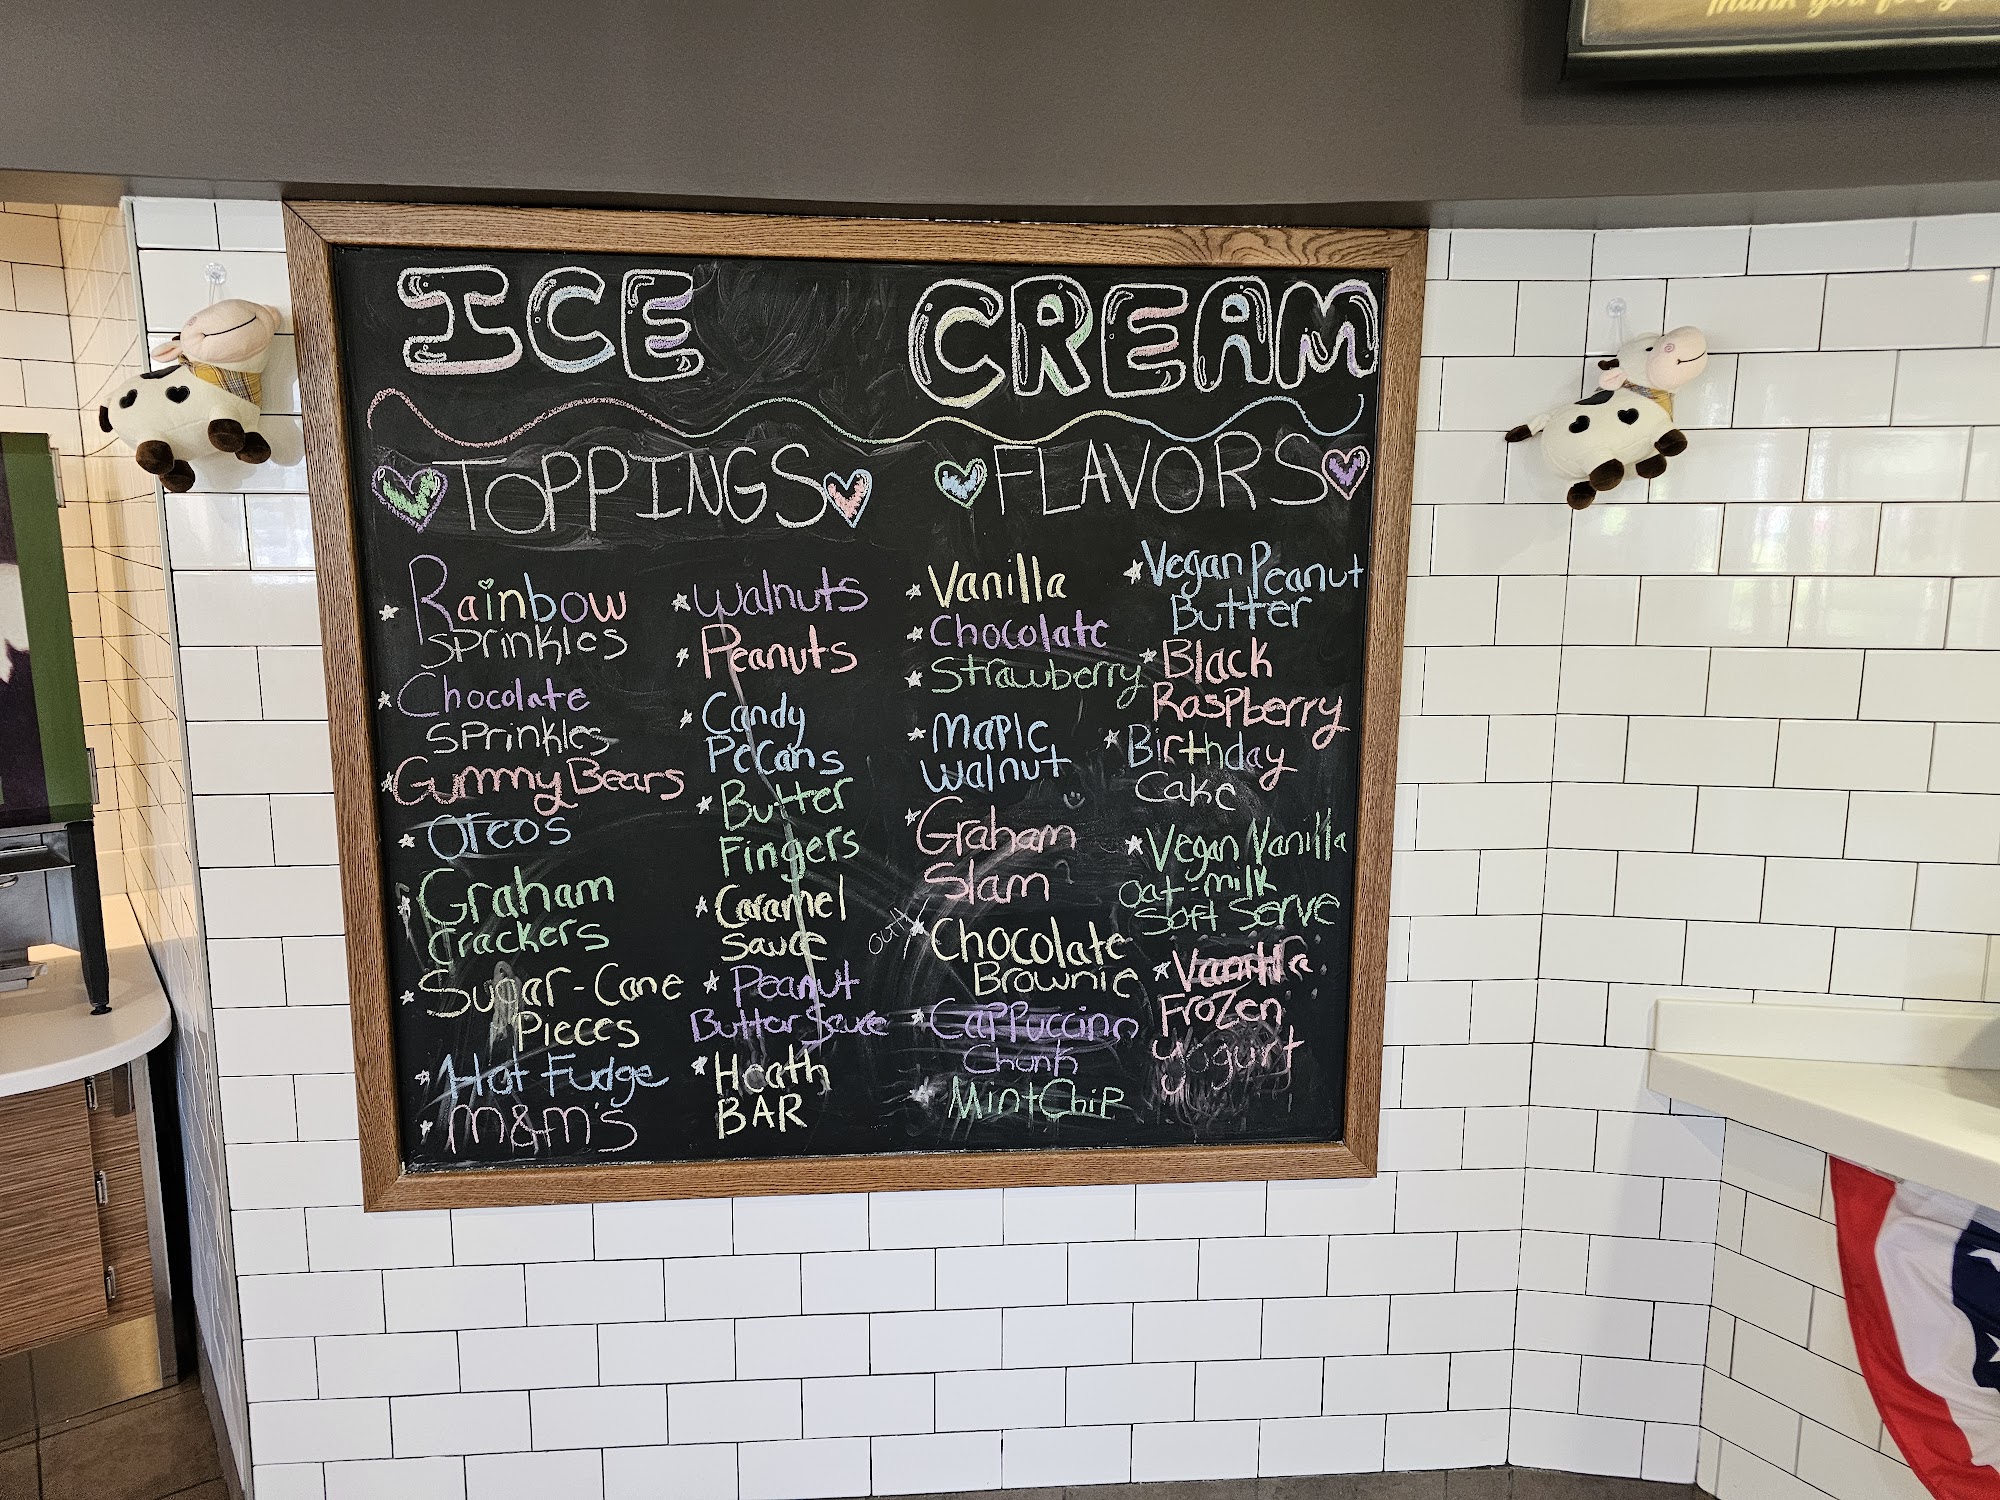 Thank you for
ICE CREAM
TOPPINGS
Rainbow
Sprinkles
Chocolate
Sprinkles
Gummy Bears
Oreos
Graham
Crackers
Sugar-Cone
Pieces
Hot Fudge
M&M's
Walnuts
Peanuts
Candy
Pecans
Butter
Fingers
Caramel
Sauce
Peanut
Butter Sauce
Heath
BAR
FLAVORS
Vanilla
Chocolate
Strawberry
Maple
Walnut
Graham
Slam
out
Chocolate
Brownie
Cappuccino
Chunk
Mint Chip
Vegan Peanut
Butter
Black
Raspberry
Birthday
Cake
Vegan Vanilla
Oat-milk
Soft Serve
Vanilla
Frozen
Yogurt